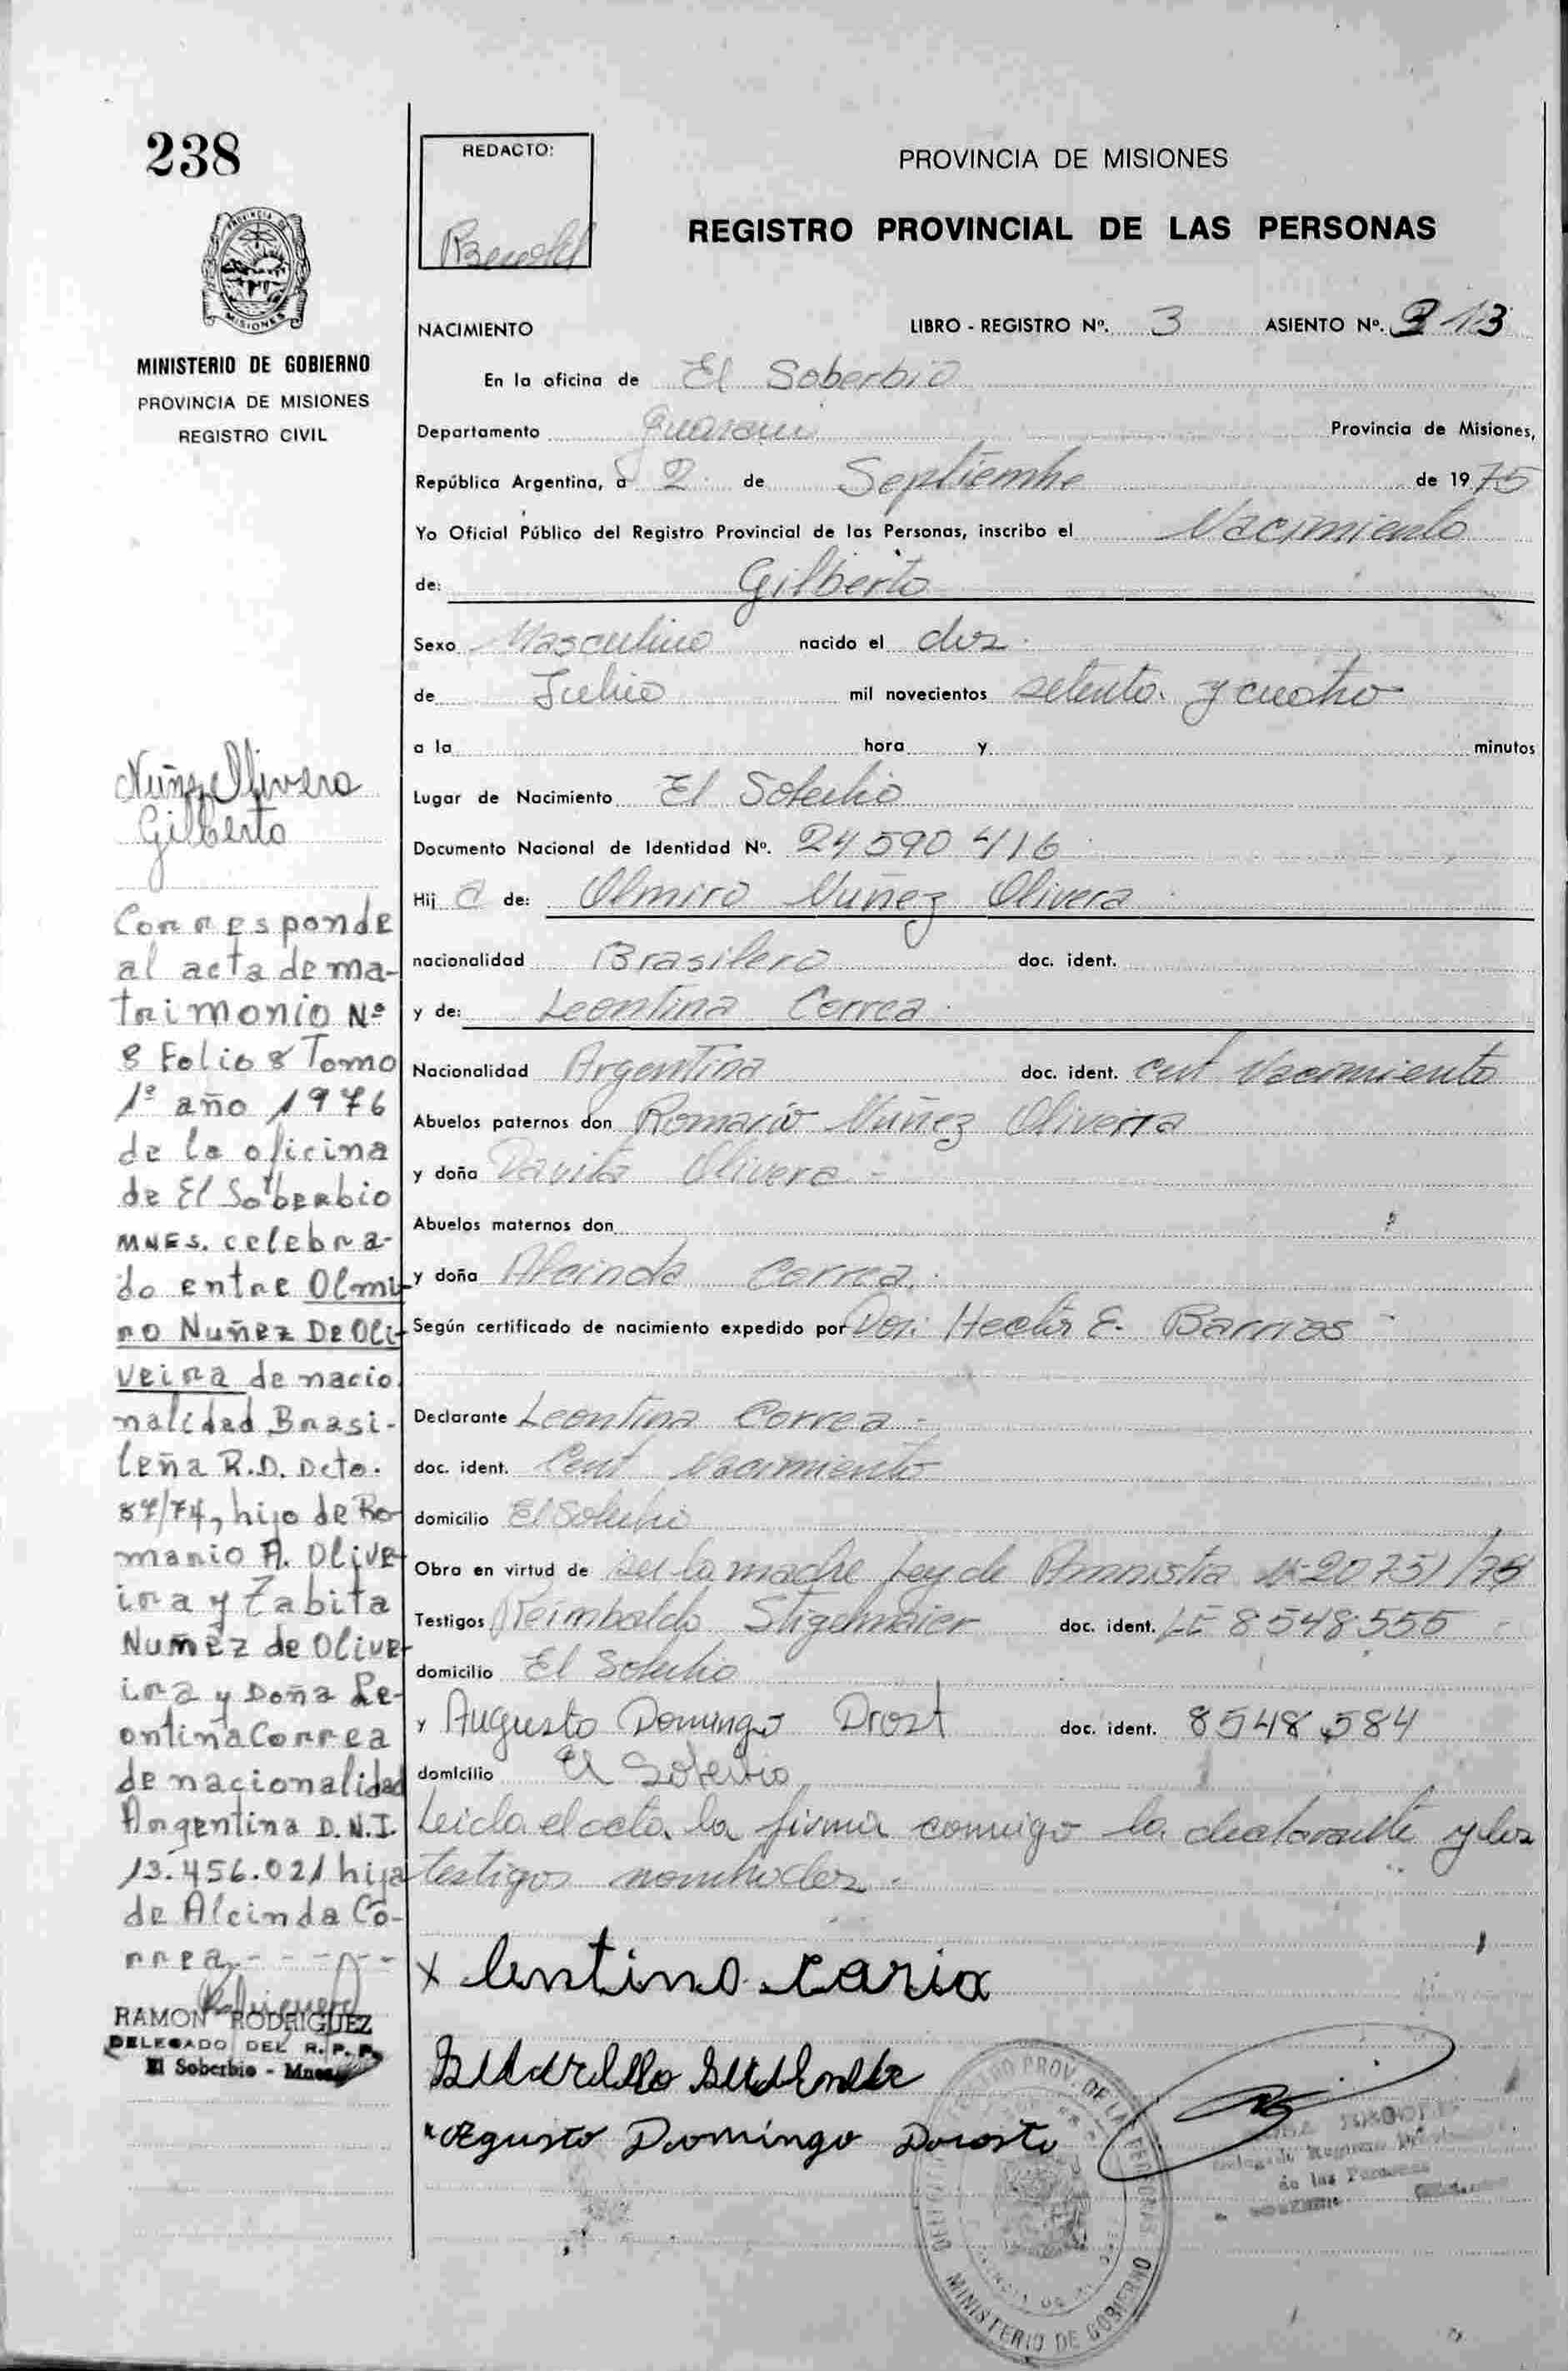 238
MINISTERIO DE GOBIERNO
PROVINCIA DE MISIONES
REGISTRO CIVIL
Nuñez Olivera
Gilberto
Corresponde
al acta de ma-
trimonio Nº
8 Folio 8 Tomo
1º año 1976
de la oficina
de El Soberbio
MNES. celebra-
do entre Olmi-
ro Nuñez De Oli-
veira de nacio
nalidad Brasi-
leña R.D. Dcto.
87/74, hijo de Ro-
manio A. Olive-
ira y Zabita
Nuñez de Olive-
ira y Doña Le-
ontina Correa
de nacionalidad
Argentina D.N.I.
13.456.021 hija
de Alcinda Co-
rrea
RAMON RODRIGUEZ
DELEGADO DEL R. P. P.
El Soberbio - Mnes
REDACTO:
PROVINCIA DE MISIONES
REGISTRO PROVINCIAL DE LAS PERSONAS
NACIMIENTO LIBRO - REGISTRO Nº. 3 ASIENTO Nº. 313
En la oficina de El Soberbio
Departamento Guarani Provincia de Misiones,
República Argentina, a 2 de Septiembre de 1975
Yo Oficial Público del Registro Provincial de las Personas, inscribo el Nacimiento
de: Gilberto
Sexo Masculino nacido el dos
de Julio mil novecientos setenta y cuatro
a la hora y minutos
Lugar de Nacimiento El Soberbio
Documento Nacional de Identidad Nº. 24590416
Hij o de: Olmiro Nuñez Olivera
nacionalidad Brasilero doc. ident.
y de: Leontina Correa
Nacionalidad Argentina doc. ident. Cert Nacimiento
Abuelos paternos don Romario Nuñez Oliveira
y doña Davita Olivera -
Abuelos maternos don
y doña Alcinda Correa.
Según certificado de nacimiento expedido por Dor: Hector E. Barrios -
Declarante Leontina Correa -
doc. ident. Cert Nacimiento
domicilio El Soberbio
Obra en virtud de ser la madre Ley de Amnistia Nº 20751/75
Testigos Reimboldo Stigelmaier doc. ident. LE 8548555
domicilio El Soberbio
y Augusto Domingo Drost doc. ident. 8548584
domicilio El Soberbio
Leida el acta la firma conmigo la declarante y los
testigos nombrados.
x lentino caria
Agusto Domingo Dorosto
MINISTERIO DE GOBIERNO
de las Personas